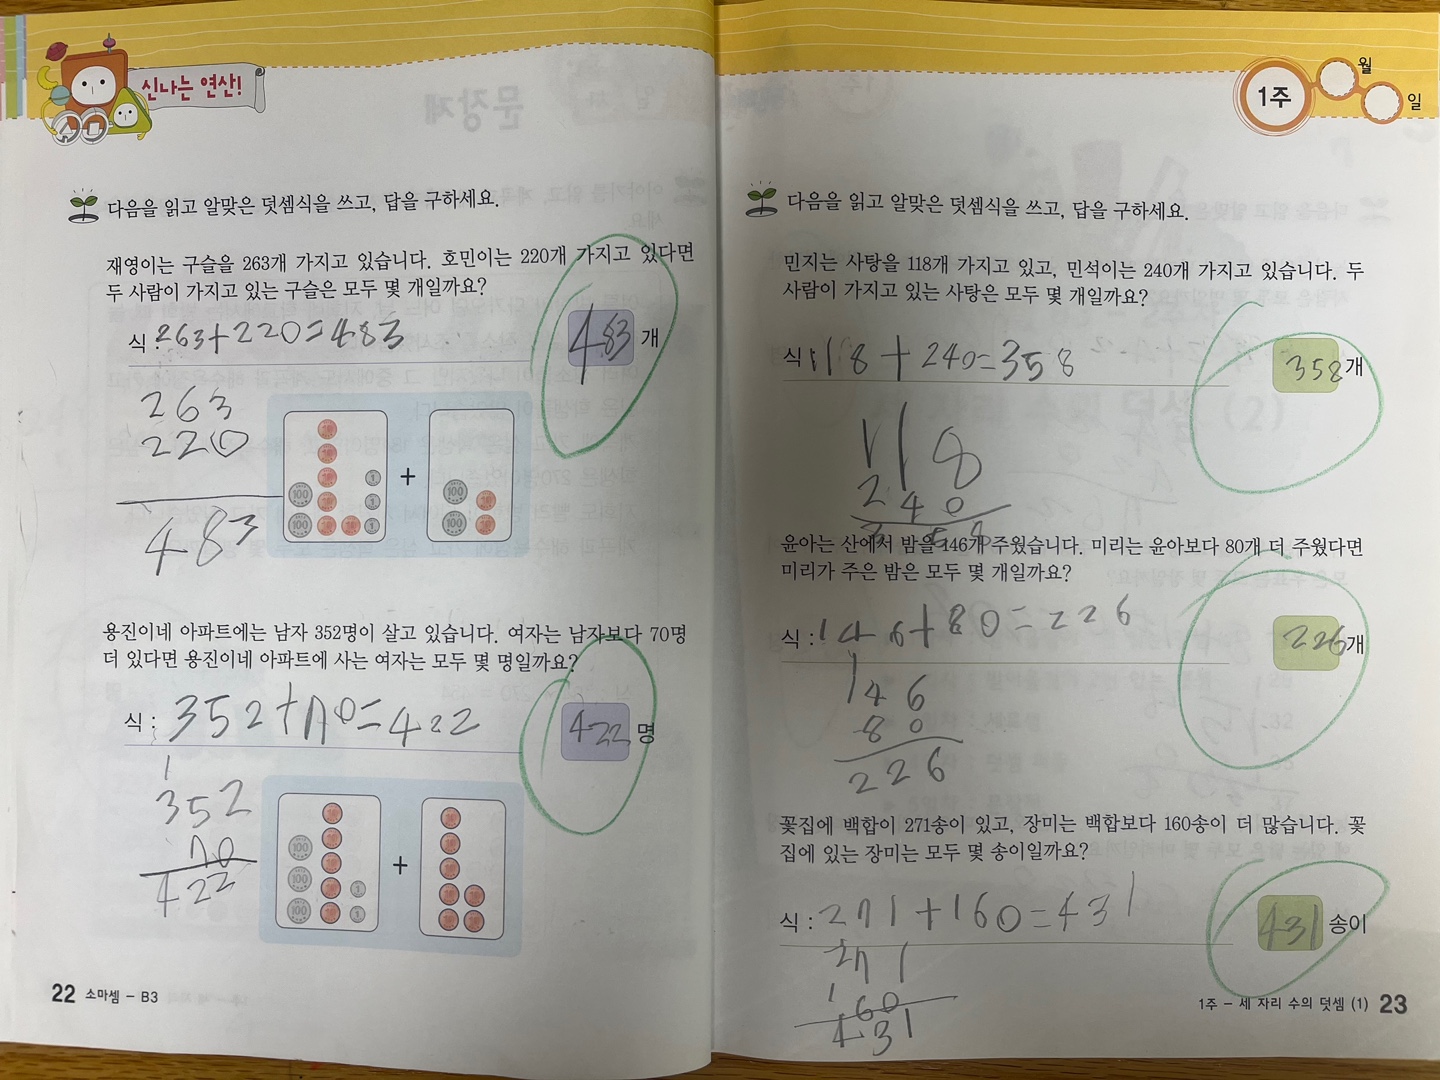 신나는 연산!
다음을 읽고 알맞은 덧셈식을 쓰고, 답을 구하세요.
재영이는 구슬을 263개 가지고 있습니다. 호민이는 220개 가지고 있다면
두 사람이 가지고 있는 구슬은 모두 몇 개일까요?
식 : 263+220=483
483 개
263
220
483
+
용진이네 아파트에는 남자 352명이 살고 있습니다. 여자는 남자보다 70명
더 있다면 용진이네 아파트에 사는 여자는 모두 몇 명일까요?
식 : 352+70=422
422 명
1
352
70
422
+
22 소마셈 - B3
1주
월
일
다음을 읽고 알맞은 덧셈식을 쓰고, 답을 구하세요.
민지는 사탕을 118개 가지고 있고, 민석이는 240개 가지고 있습니다. 두
사람이 가지고 있는 사탕은 모두 몇 개일까요?
식 : 118+240=358
358 개
118
240
358
윤아는 산에서 밤을 146개 주웠습니다. 미리는 윤아보다 80개 더 주웠다면
미리가 주운 밤은 모두 몇 개일까요?
식 : 146+80=226
226 개
146
80
226
꽃집에 백합이 271송이 있고, 장미는 백합보다 160송이 더 많습니다. 꽃
집에 있는 장미는 모두 몇 송이일까요?
식 : 271+160=431
431 송이
271
160
431
1주 - 세 자리 수의 덧셈 (1) 23